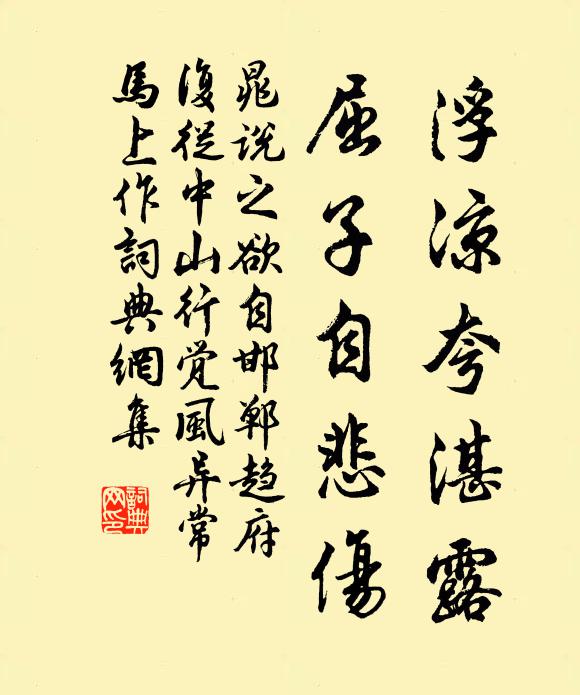 浮涼夸湛露
屈子自悲傷
晁说之欲自邯郸趋府
復從中山行觉風异常
馬上作詞典網集
詞典網印